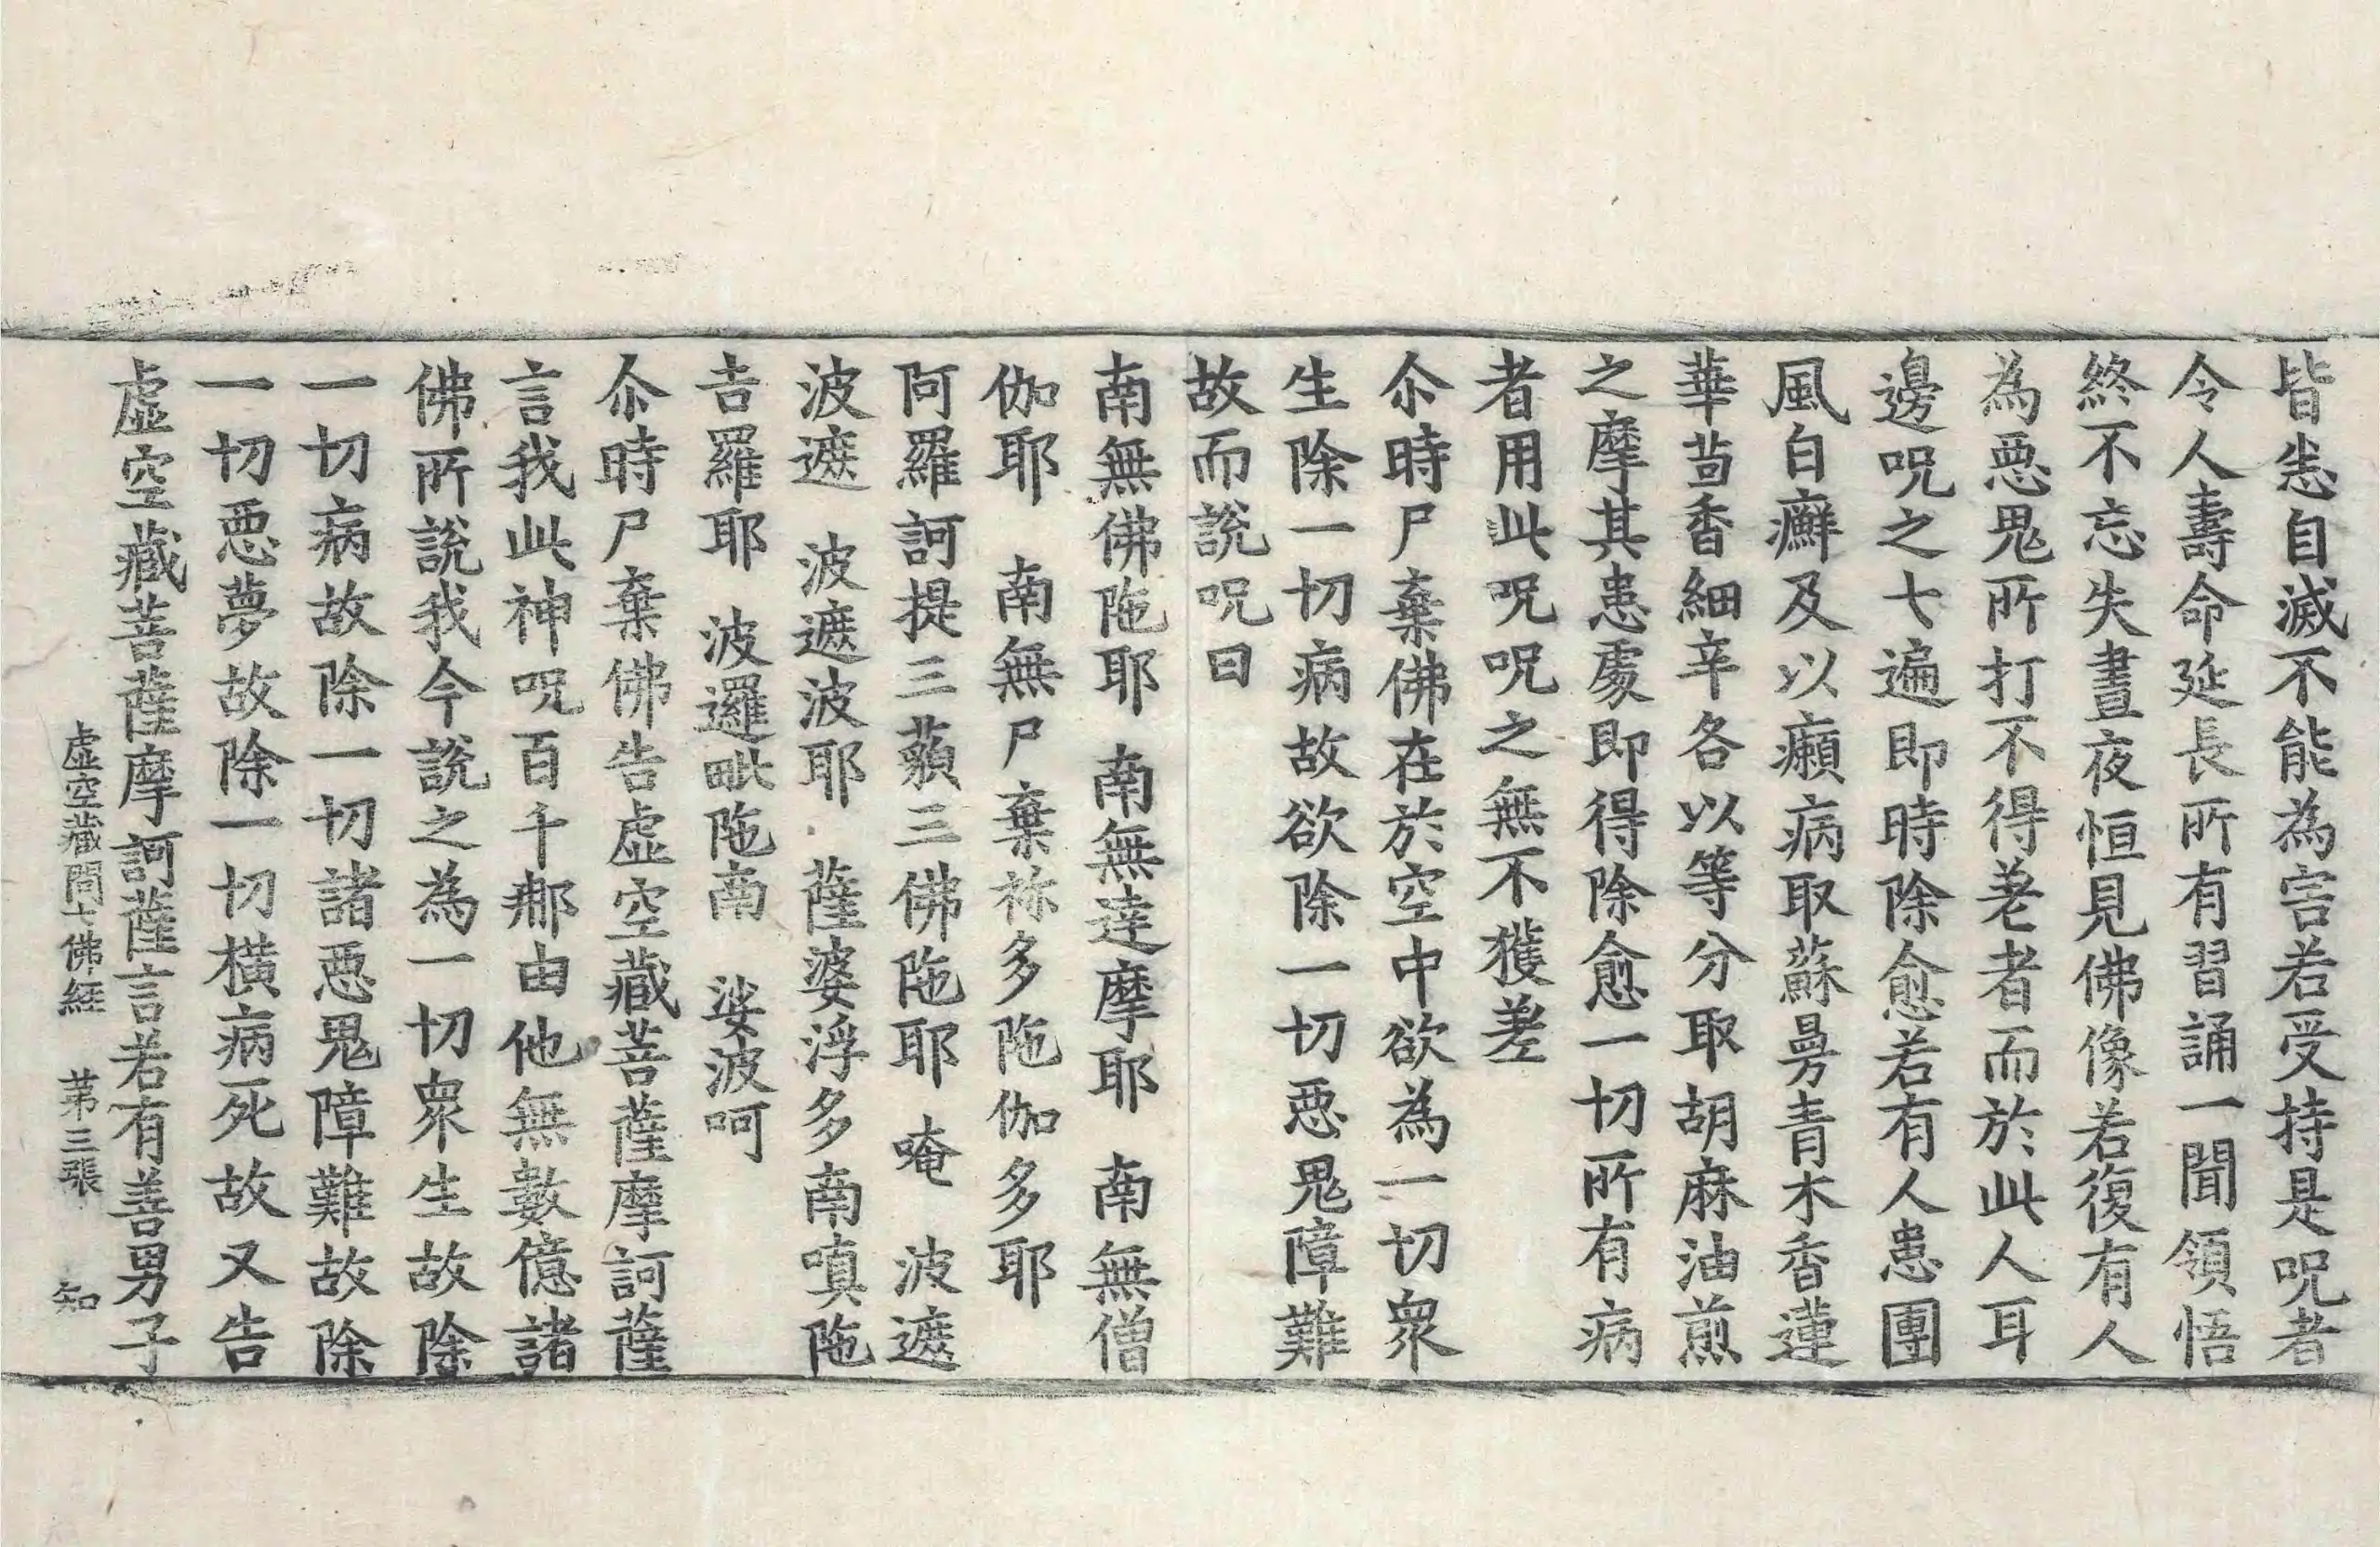 皆恙自滅不能為害若受持是呪者
令人壽命延長所有習誦一聞領悟
終不忘失晝夜恒見佛像若復有人
為惡鬼所打不得差者而於此人耳
邊呪之七遍即時除愈若有人患團
風白癬及以癩病取蘇曼青木香蓮
華茴香細辛各以等分取胡麻油煎
之摩其患處即得除愈一切所有病
者用此呪呪之無不獲差
尒時尸棄佛在於空中欲為一切眾
生除一切病故欲除一切惡鬼障難
故而說呪曰
南無佛陁耶　南無達摩耶　南無僧
伽耶　南無尸棄祢多陁伽多耶
阿羅訶提三藐三佛陁耶　唵　波遮
波遮　波遮波耶　薩婆浮多南嗔陁
吉羅耶　波邏毗陁南　娑波呵
尒時尸棄佛告虛空藏菩薩摩訶薩
言我此神呪百千那由他無數億諸
佛所說我今說之為一切眾生故除
一切病故除一切諸惡鬼障難故除
一切惡夢故除一切橫病死故又告
虛空藏菩薩摩訶薩言若有善男子
虛空藏問七佛經　第三張　知